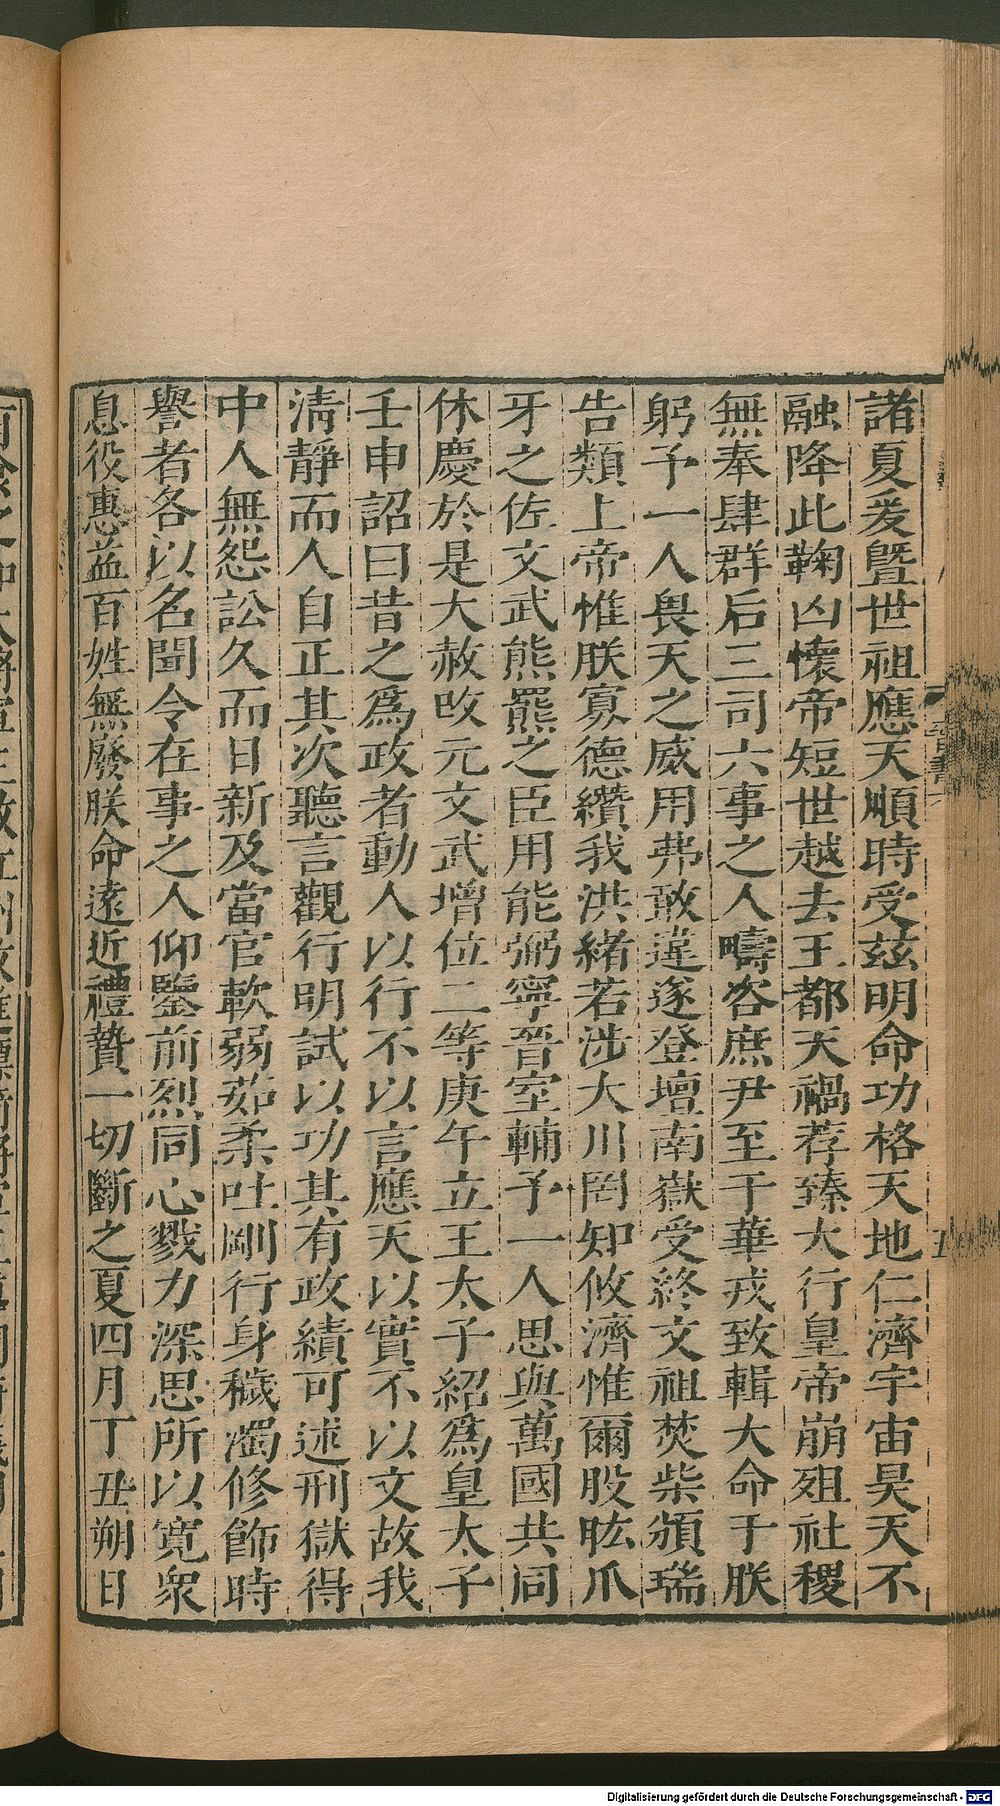 諸夏爰暨世祖應天順時受茲明命功格天地仁濟宇宙昊天不
融降此鞠凶懷帝短世越去王都天禍荐臻大行皇帝崩殂社稷
無奉肆群后三司六事之人疇咨庶尹至于華戎致輯大命于朕
躬予一人畏天之威用弗敢違遂登壇南嶽受終文祖焚柴頒瑞
告類上帝惟朕寡德纘我洪緒若涉大川罔知攸濟惟爾股肱爪
牙之佐文武熊羆之臣用能弼寧晉室輔予一人思與萬國共同
休慶於是大赦改元文武增位二等庚午立王太子紹爲皇太子
壬申詔曰昔之爲政者動人以行不以言應天以實不以文故我
清靜而人自正其次聽言觀行明試以功其有政績可述刑獄得
中人無怨訟久而日新及當官軟弱茹柔吐剛行身穢濁修飾時
譽者各以名聞令在事之人仰鑒前烈同心戮力深思所以寬衆
息役惠益百姓無廢朕命遠近禮贄一切斷之夏四月丁丑朔日
晉書六
Digitalisierung gefördert durch die Deutsche Forschungsgemeinschaft - DFG